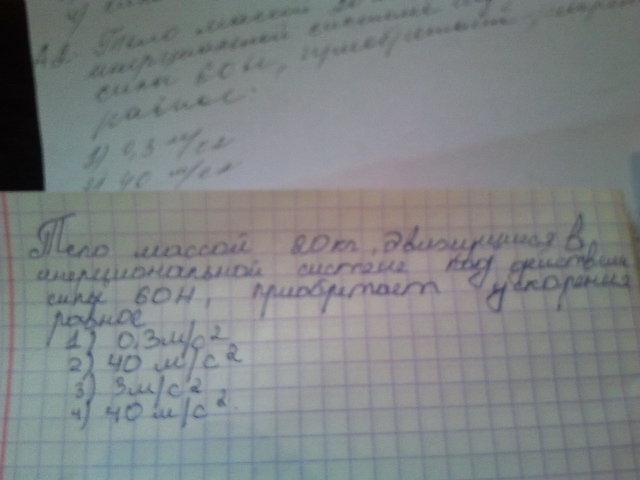 4)
А2. Тело массой 20
инерциальной системе
силы 60 Н, приобретает
равное.
1) 0,3 м/с2
2) 40 м/с2
Тело массой 20 кг, движущийся в
инерциональной системе под действием
силы 60Н, приобретает ускорение
равное
1) 0,3м/с2
2) 40 м/с2
3) 3м/с2
4) 40 м/с2.